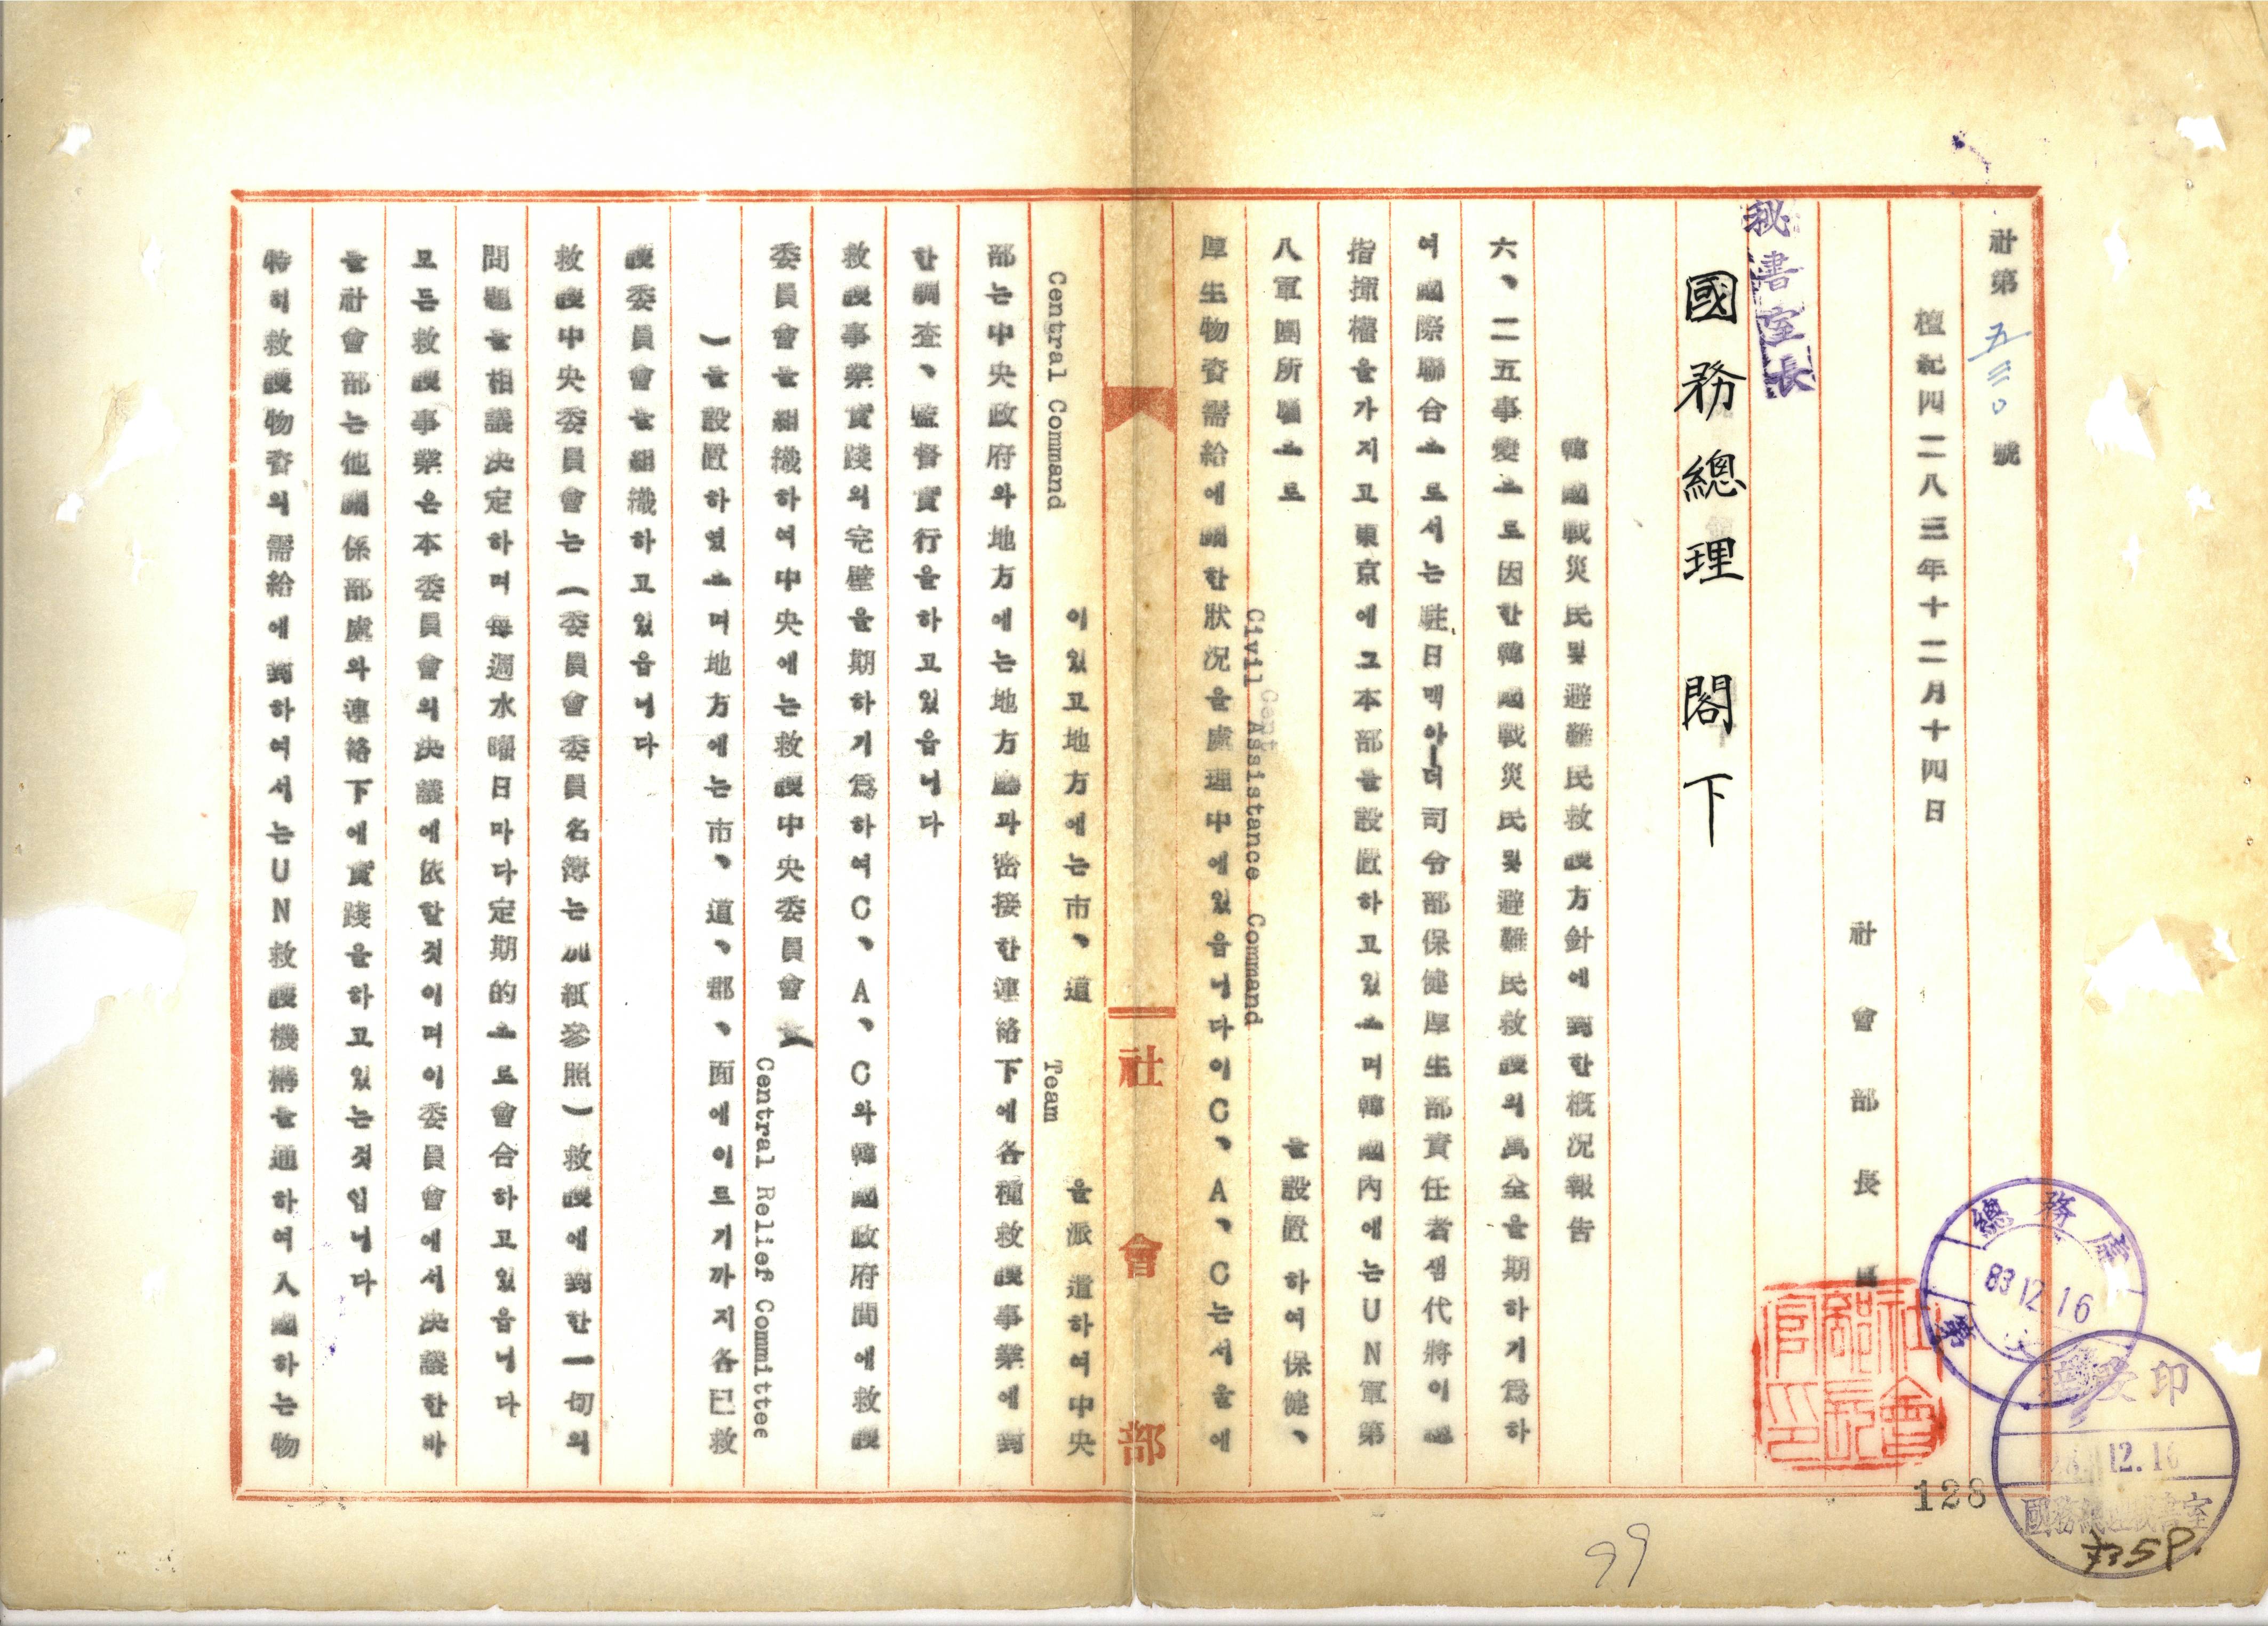 社第五三〇號
檀紀四二八三年十二月十四日
社會部長
秘書室長
國務總理 閣下
韓國戰災民및避難民救護方針에對한槪況報告
六、二五事變으로因한韓國戰災民및避難民救護의萬全을期하기爲하
여國際聯合으로서는駐日맥아더司令部保健厚生部責任者샘代將이
指揮權을가지고東京에그本部를設置하고있으며韓國內에는UN軍第
八軍團所屬으로
Civil Assistance Command
를設置하여保健、
厚生物資需給에關한狀況을處理中에있읍니다이C、A、C는서울에
社會部
Central Command
이있고地方에는市、道
Team
을派遣하여中央
部는中央政府와地方에는地方廳과密接한連絡下에各種救護事業에對
한調査、監督實行을하고있읍니다
救護事業實踐의完璧을期하기爲하여C、A、C와韓國政府間에救護
委員會를組織하여中央에는救護中央委員會
Central Relief Committee
)를設置하였으며地方에는市、道、郡、面에이르기까지各已救
護委員會를組織하고있읍니다
救護中央委員會는(委員會委員名簿는別紙參照)救護에對한一切의
問題를相議決定하며每週水曜日마다定期的으로會合하고있읍니다
모든救護事業은本委員會의決議에依할것이며이委員會에서決議한바
를社會部는他關係部處와連絡下에實踐을하고있는것입니다
特히救護物資의需給에對하여서는UN救護機構를通하여入國하는物
總務處
83 12 16
接受印
12.16
國務總理秘書室
128
99